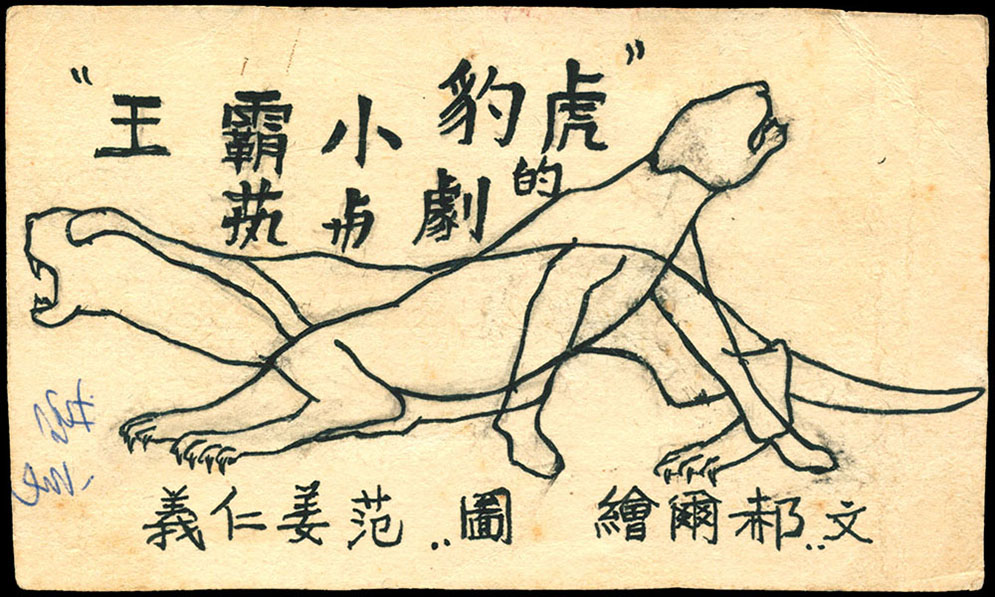 "虎豹小霸王"
的劇与
文..郝爾繪 圖..范姜仁義